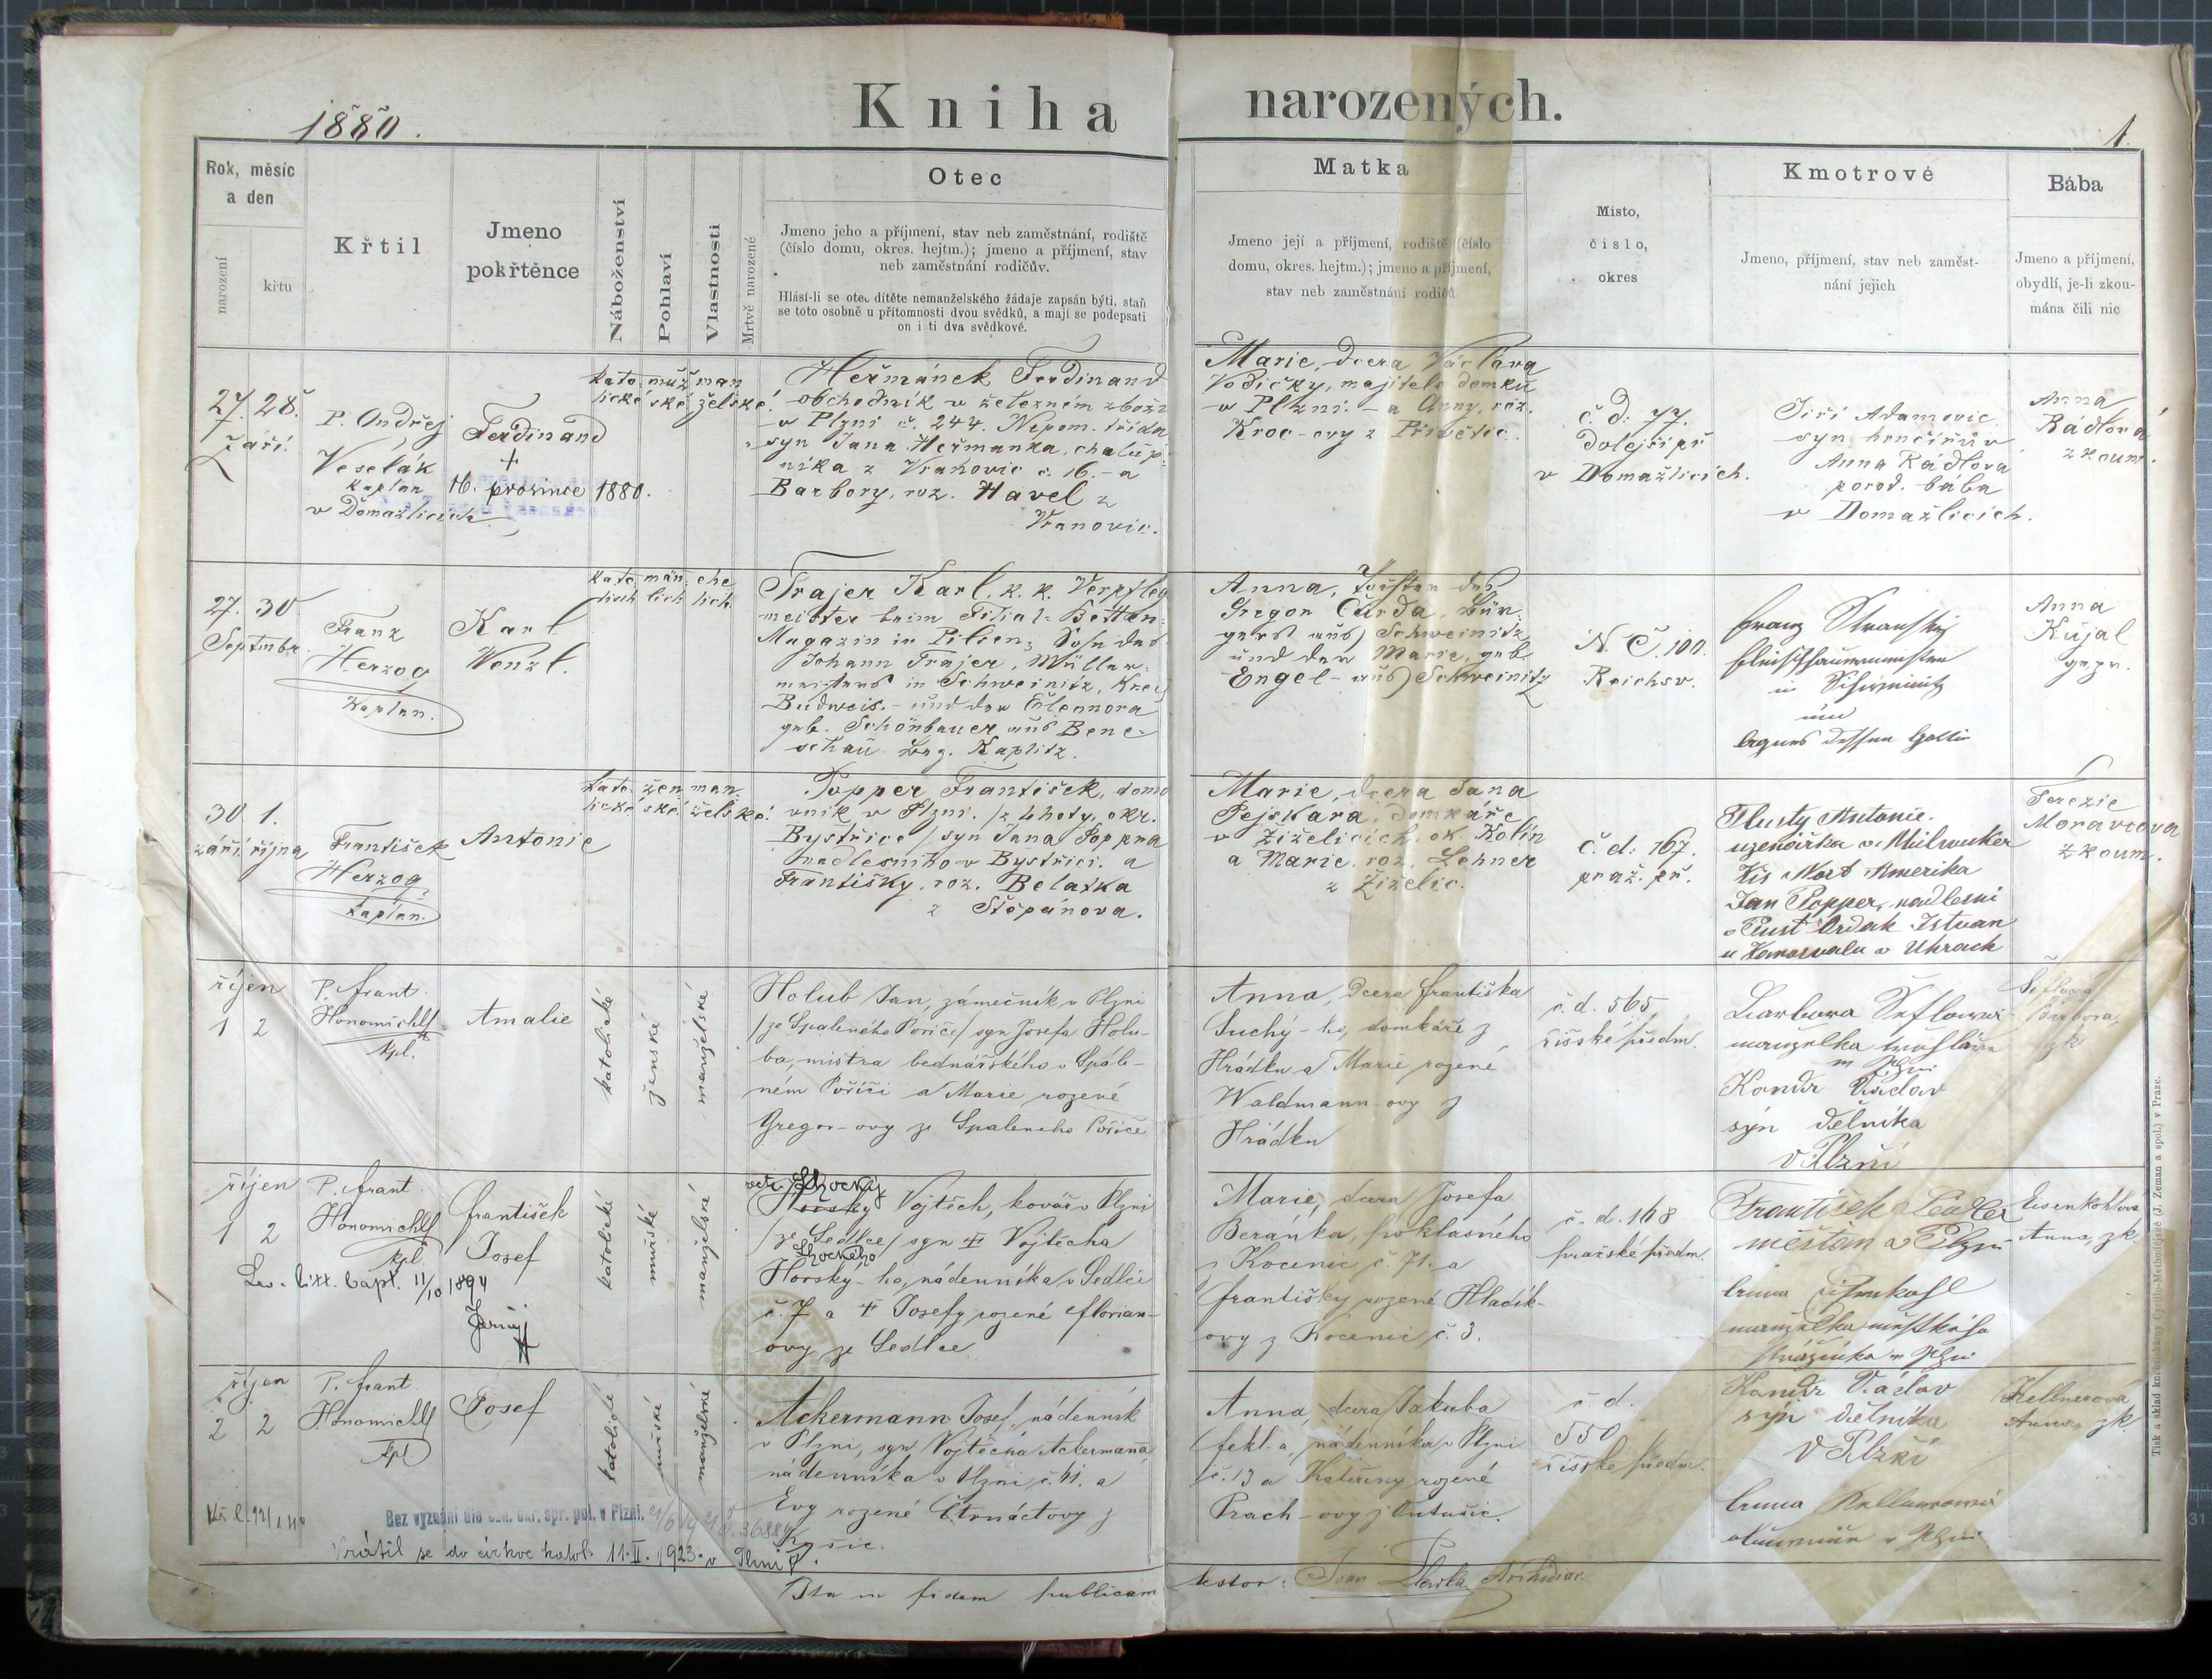 1880.
Kniha narozených.
1.
Rok, měsíc
a den
narození
křtu
Křtil
Jmeno
pokřtěnce
Náboženství
Pohlaví
Vlastnosti
Mrtvě narozené
Otec
Jmeno jeho a příjmení, stav neb zaměstnání, rodiště
(číslo domu, okres. hejtm.); jmeno a příjmení, stav
neb zaměstnání rodičův.
Hlásí-li se otec dítěte nemanželského žádaje zapsán býti, staň
se toto osobně u přítomnosti dvou svědků, a mají se podepsati
on i ti dva svědkové.
Matka
Jmeno její a příjmení, rodiště (číslo
domu, okres. hejtm.); jmeno a příjmení,
stav neb zaměstnání rodičů
Misto,
číslo,
okres
Kmotrové
Jmeno, příjmení, stav neb zaměst-
nání jejich
Bába
Jmeno a příjmení,
obydlí, je-li zkou-
mána čili nic
27. 28.
září.
P. Ondřej
Veselák
kaplan
v Domažlicích
Ferdinand
+
16. prosince 1880.
kato muž man
lické ské želské.
Heřmánek Ferdinand
obchodník v železném zboží
v Plzni č. 244. Nepom. třída
syn Jana Heřmanka, chalup-
níka z Vranovic č. 16. - a
Barbory, roz. Havel z
Vranovic.
Marie, dcera Václava
Vodičky, majitele domku
v Plzni. - a Anny, roz.
Kroc-ovy z Přivětic.
č. d: 77.
dolejší př
v Domažlicích.
Jiří Adamovic
syn
Anna Rádlová
porod. bába
v Domažlicích.
Anna
Rádlová
zkoum.
27. 30.
Septmbr.
Franz
Herzog
Kaplan.
Karl
Wenzl.
kato män ehe
lisch lich lich.
Trajer Karl, k. k. Verpfleg
meister beim Filial-Betten-
Magazin in Pilsen, Sohn des
Johann Trajer, Müller-
meisters in Schweinitz, Kreis
Budweis. - und der Eleonora
geb. Schönbauer aus Bene-
schau Bez. Kaplitz.
Anna, Tochter des
Gregor Čurda, Bür-
gers aus Schweinitz
und der Marie, geb.
Engel - aus Schweinitz
N. C. 100.
Reichsv.
Franz Stransky
Fleischhauermeister
in Schweinitz
und
Agnes dessen Gattin
Anna
Kujal
gepr.
30. 1.
září. října
František
Herzog
kaplan.
Antonie
kato žen man
lické ské. želské.
Popper František, domo
vník v Plzni. /z Lhoty, okr.
Bystřice/ syn Jana Poppra
nadlesního v Bystřici. a
Františky, roz. Belatka
z Štěpánova.
Marie, dcera Jana
Pejskara, domkáře
v Žiželicích, ok. Kolín
a Marie, roz. Lehner
z Žiželic.
č. d: 167.
praž. př.
Tlusty Antonie.
uzenářka v Milwauker
Vis Nort Amerika
Jan Popper, nadlesni
v Pust Ordak Istvan
u Uhrach
Terezie
Moravcova
zkoum.
říjen
1 2
P. Frant.
Honomichl
kpl.
Amalie
katolické
ženské
manželské
Holub Jan, zámečník v Plzni
/ze Spaleného Poříčí/ syn Josefa Holu-
ba, mistra bednářského v Spále-
ném Poříčí a Marie rozené
Gregor-ovy ze Spaleného Poříčí
Anna, dcera Františka
Suchý-ho, domkáře z
Hrádku a Marie rozené
Waldmann-ovy z
Hrádku
č. d. 565
říšské předm.
Barbora
manželka truhláře
v Plzni
Kandr Václav
syn dělníka
v Plzni
Barbora,
zk
říjen
1 2
P. Frant.
Honomichl
kpl
František
Josef
Lev. litt. bapt. 11/10 1894
katolické
mužské
manželské
Horsky Vojtěch, kovář v Plzni
/ze Sedlce/ syn † Vojtěcha
Horsky-ho, nádenníka v Sedlci
č. 7 a † Josefy rozené Florian-
ovy ze Sedlce
Marie, dcera Josefa
Beránka, poklasného
z Kocenic č. 71. a
Františky rozené Hladík-
ovy z Kocenic č. 3.
č. d. 168
pražské předm.
František
měšťan v Plzni
Anna Eisenkohl
manželka městského
strážníka v Plzni
Eisenkohlová
Anna, zk
říjen
2 2
P. Frant
Honomichl
kpl
Josef
katolické
mužské
manželské
Ackermann Josef, nádenník
v Plzni, syn Vojtěcha Ackermanna,
nádenníka v Plzni č. 61. a
Evy rozené Čtrnáctovy z
Kyšic.
Anna, dcera Jakuba
Fekl-a, nádenníka v Plzni
č. 13 a Kateřiny rozené
Prach-ovy z Tutušic.
č d.
550
říšské předm.
Kandr Václav
syn dělníka
V Plzni
Anna Kellnerová
v Plzni
Kellnerová
Anna, zk
Bez vyznání dle ozn. okr. spr. pol. v Plzni.
Vrátil se do církve katol. 11. II. 1923. v Plzni
Ita in fidem publicam testor: Archidiac.
Tisk a sklad knihtiskárny Cyrillo-Methodějské (J. Zeman a spol.) v Praze.